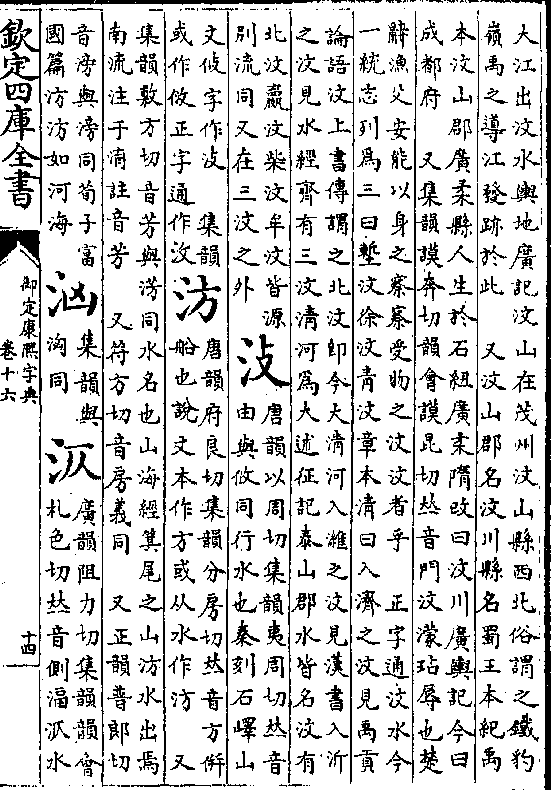 大江出汶水輿地廣記汶山在茂州汶山縣西北俗謂之鐵豹
嶺禹之導江發跡於此 又汶山郡名汶川縣名蜀王本紀禹
本汶山郡廣柔縣人生於石紐廣柔隋改曰汶川廣輿記今曰
成都府 又集韻謨奔切韻會謨昆切𠀤音門汶濛玷辱也楚
辭漁父安能以身之察察受物之汶汶者乎 正字通汶水今
一統志列爲三曰塹汶徐汶青汶章本清曰入濟之汶見禹貢
論語汶上書傳謂之北汶卽今大清河入濰之汶見漢書入沂
之汶見水經齊有三汶清河爲大述征記泰山郡水皆名汶有
北汶嬴汶柴汶牟汶皆源
別流同又在三汶之外
㳊
唐韻以周切集韻夷周切𠀤音
由與攸同行水也秦刻石嶧山
文攸字作㳊 集韻
或作攸正字通作汷
汸
唐韻府良切集韻分房切𠀤音方倂
船也說文本作方或从水作汸 又
集韻敷方切音芳與淓同水名也山海經箕尾之山汸水出焉
南流注于淯註音芳 又符方切音房義同 又正韻普郎切
音滂與滂同荀子富
國篇汸汸如河海
汹
集韻與
洶同
㲸
廣韻阻力切集韻韻會
札色切𠀤音側湢㲸水
欽定四庫全書
御定康熙字典
卷十六
十四